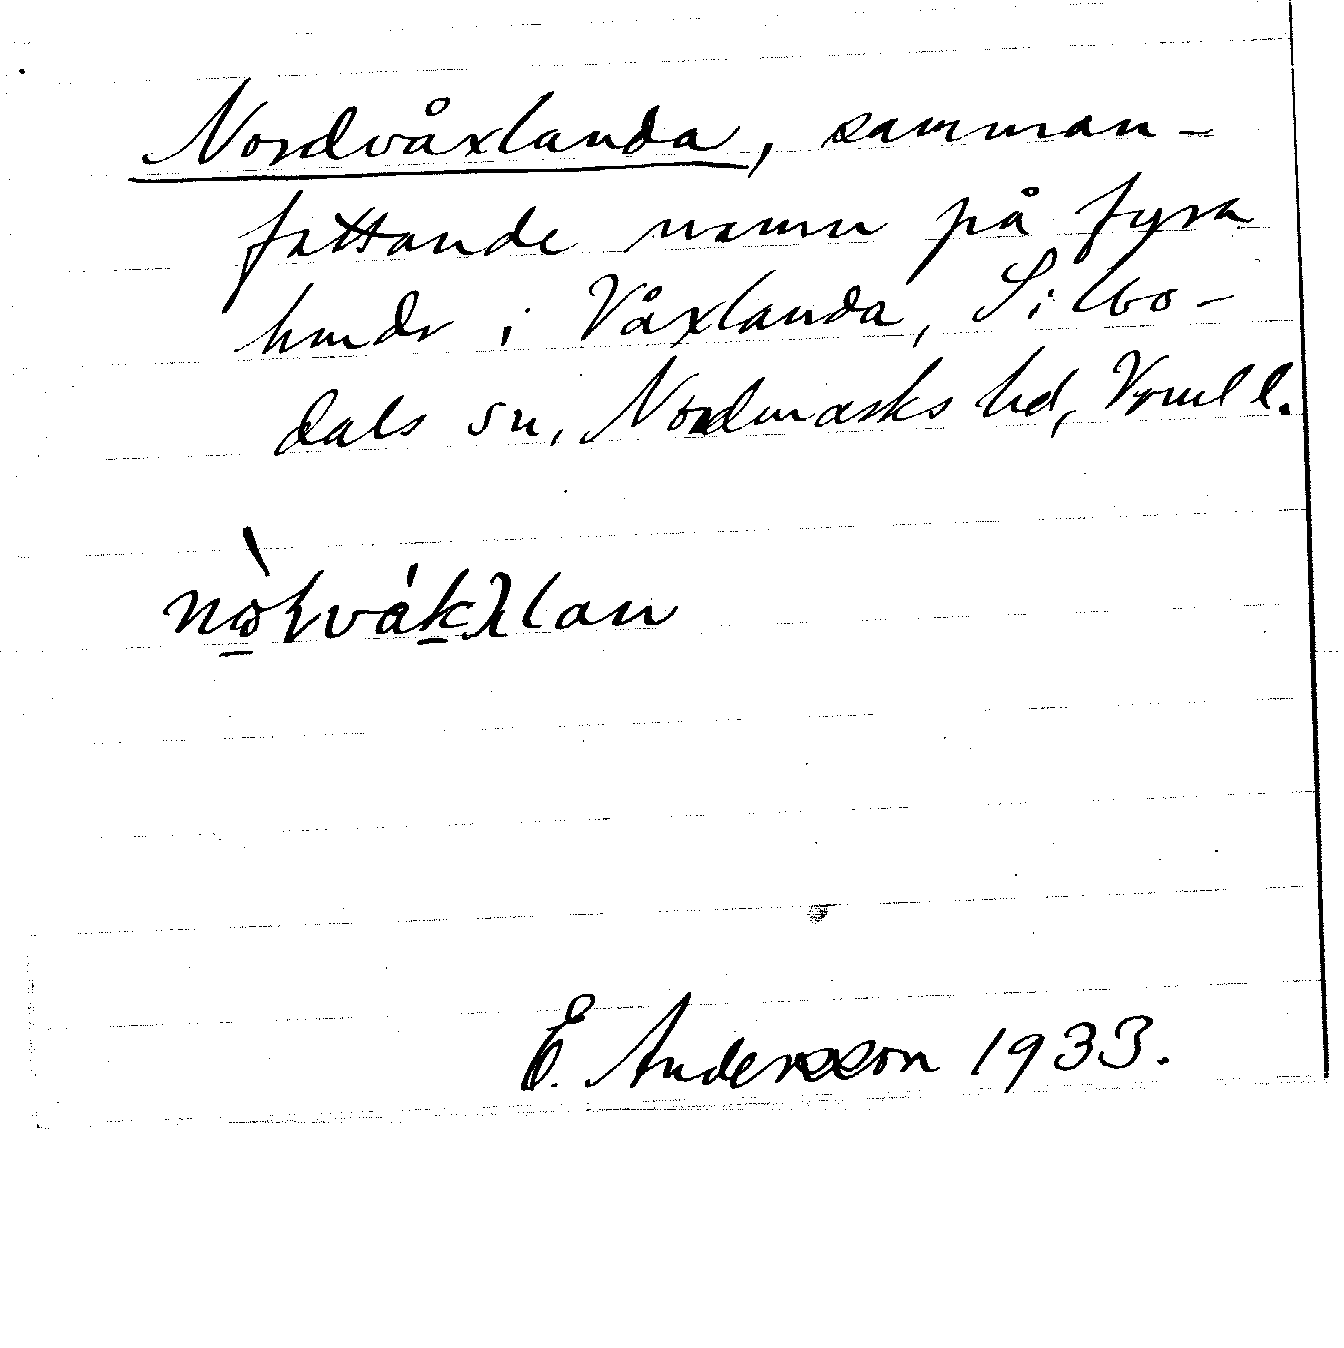 Nordvåxlanda, samman-
fattande namn på fyra
hmdr i Våxlanda, Silbo-
dals sn, Nordmarks hd, Vrml l.
E. Andersson 1933.